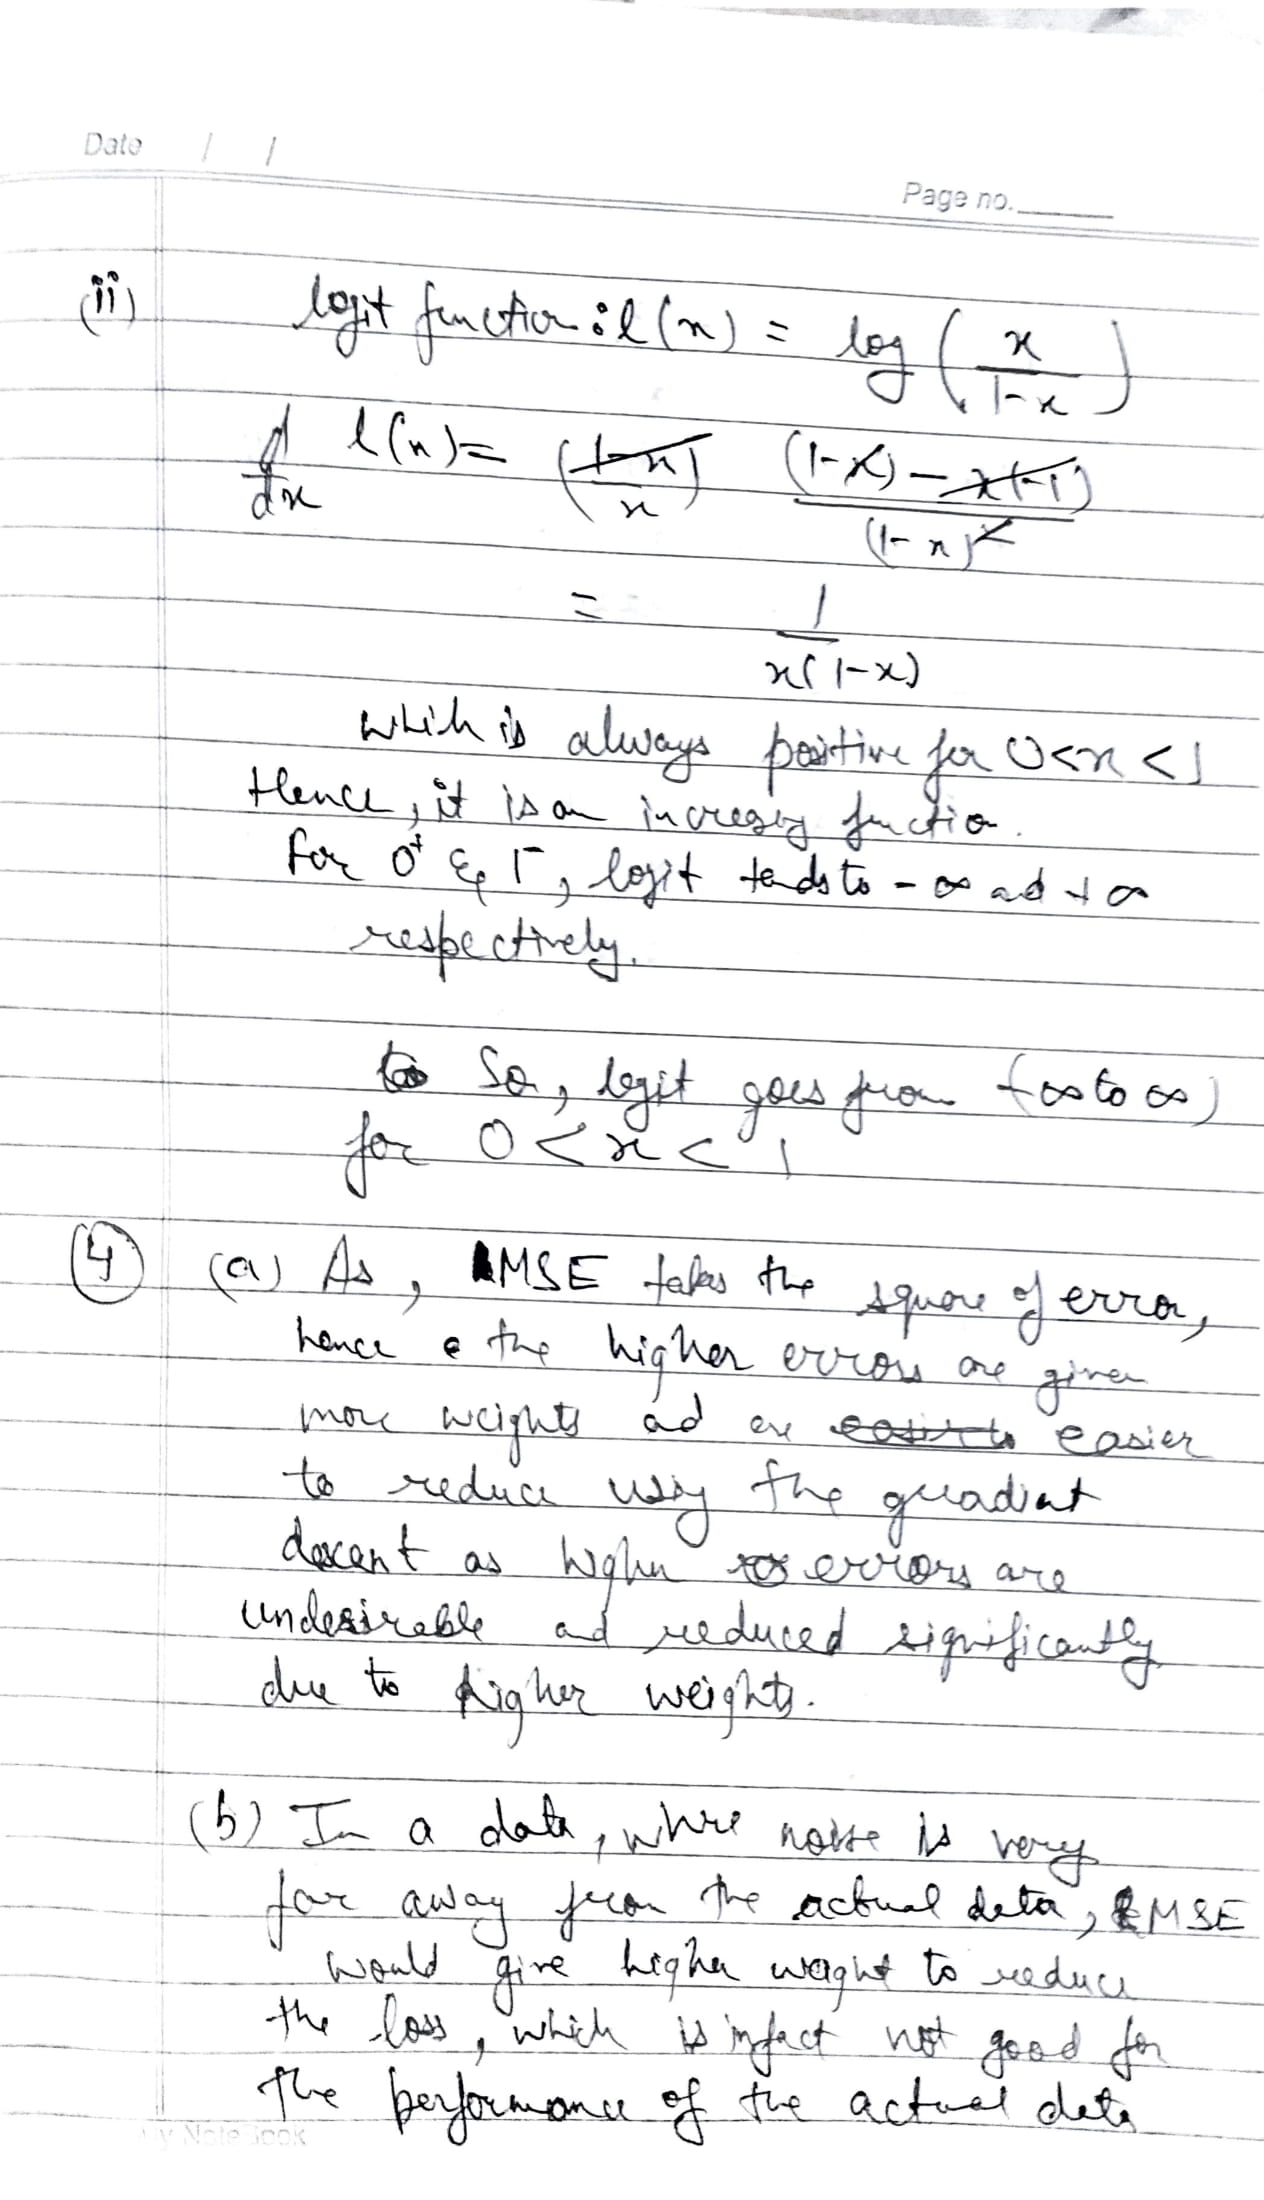 Date / /
Page no.
(ii) logit function : l(x) = log ( x / 1-x )
d/dx l(x) = (1-x)/x ((1-x) - x(-1))/(1-x)²
= 1 / x(1-x)
which is always positive for 0<x<1
Hence, it is an increasing function.
For 0⁺ & 1⁻, logit tends to -∞ and +∞
respectively.
So, logit goes from (-∞ to ∞)
for 0 < x < 1
4 (a) As, MSE takes the square of error,
hence the higher errors are given
more weights and are easier
to reduce using the gradient
descent as higher errors are
undesirable and reduced significantly
due to higher weights.
(b) In a data, where noise is very
far away from the actual data, MSE
would give higher weight to reduce
the loss, which is infact not good for
the performance of the actual data
My NoteBook